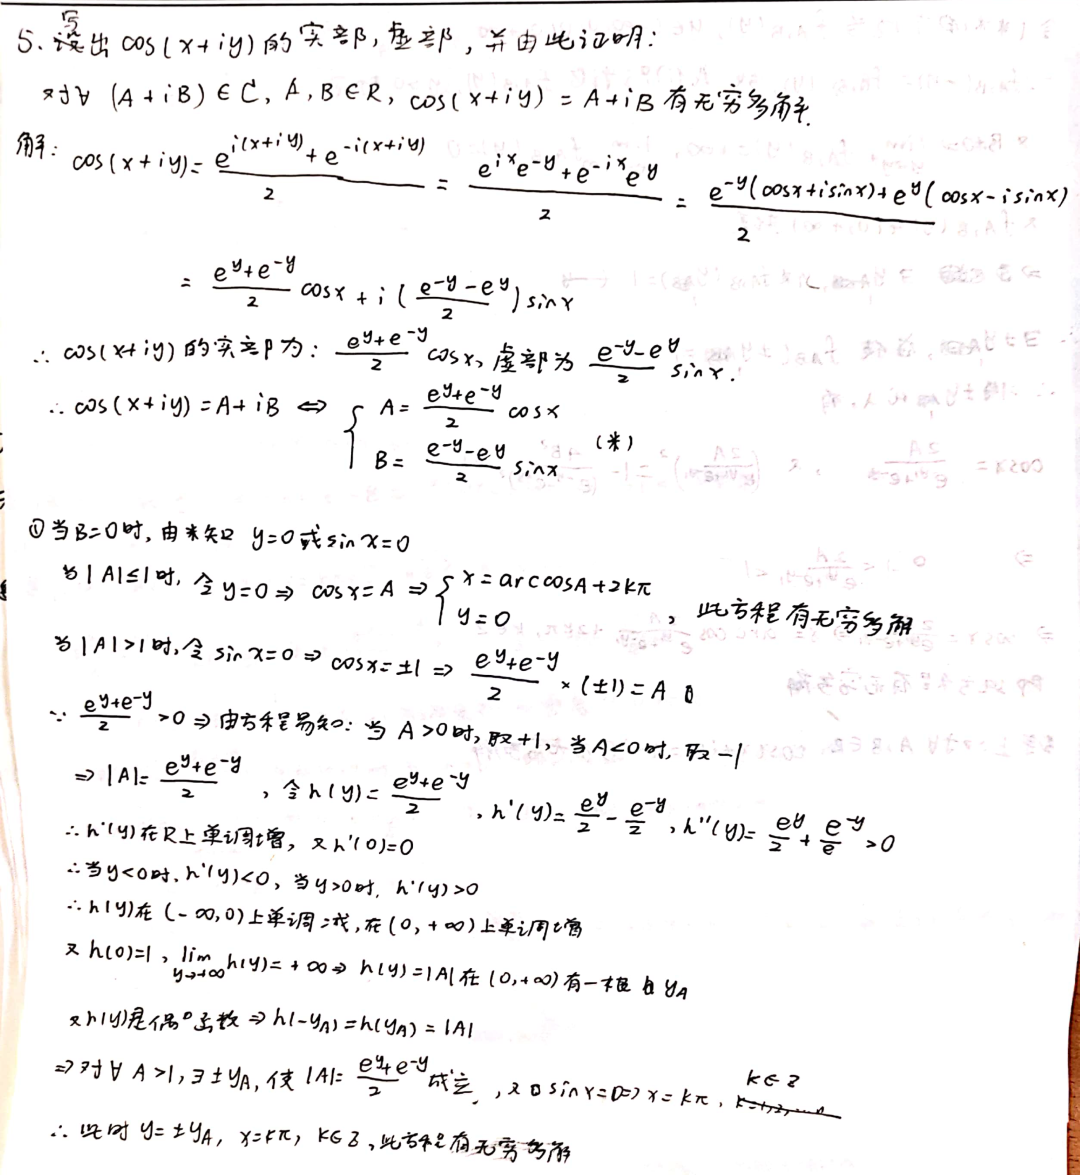 5. 写出 cos(x+iy) 的实部,虚部,并由此证明:
对∀ (A+iB)∈C, A,B∈R, cos(x+iy) = A+iB 有无穷多解.
解: cos(x+iy) = \frac{e^{i(x+iy)}+e^{-i(x+iy)}}{2} = \frac{e^{ix}e^{-y}+e^{-ix}e^{y}}{2} = \frac{e^{-y}(cosx+isinx)+e^{y}(cosx-isinx)}{2}
= \frac{e^{y}+e^{-y}}{2} cosx + i(\frac{e^{-y}-e^{y}}{2}) sinx
∴ cos(x+iy) 的实部为: \frac{e^{y}+e^{-y}}{2} cosx, 虚部为 \frac{e^{-y}-e^{y}}{2} sinx.
∴ cos(x+iy) = A+iB ⇔ { A = \frac{e^{y}+e^{-y}}{2} cosx
B = \frac{e^{-y}-e^{y}}{2} sinx (*)
① 当B=0时, 由*知 y=0或sinx=0
当|A|≤1时, 令y=0 ⇒ cosx=A ⇒ { x=arccosA+2kπ
y=0 , 此方程有无穷多解
当|A|>1时, 令 sinx=0 ⇒ cosx=±1 ⇒ \frac{e^{y}+e^{-y}}{2} × (±1) = A
∵ \frac{e^{y}+e^{-y}}{2} >0 ⇒ 由方程易知: 当 A>0时, 取+1, 当A<0时, 取-1
⇒ |A| = \frac{e^{y}+e^{-y}}{2} , 令h(y) = \frac{e^{y}+e^{-y}}{2} , h'(y) = \frac{e^{y}}{2} - \frac{e^{-y}}{2} , h''(y) = \frac{e^{y}}{2} + \frac{e^{-y}}{e} >0
∴ h'(y)在R上单调增, 又h'(0)=0
∴ 当y<0时, h'(y)<0, 当y>0时, h'(y)>0
∴ h(y)在 (-∞,0)上单调减, 在(0,+∞)上单调增
又 h(0)=1, \lim_{y→+∞} h(y)=+∞ ⇒ h(y)=|A| 在(0,+∞)有一根 y_A
又h(y)是偶函数 ⇒ h(-y_A)=h(y_A)=|A|
⇒ 对∀ A>1, ∃ ±y_A, 使 |A| = \frac{e^{y}+e^{-y}}{2} 成立, 又 sinx=0 ⇒ x=kπ, k∈Z
∴ 此时 y=±y_A, x=kπ, k∈Z, 此方程有无穷多解